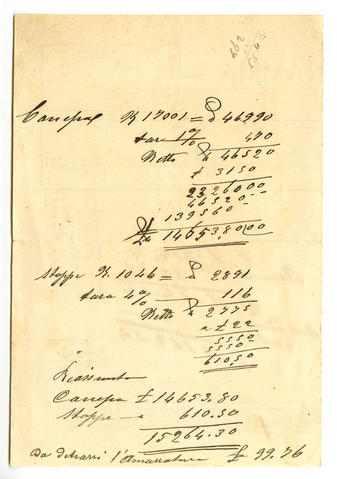 Canepa K 17001 = ₰ 46990
tara 1% 470
Netto ₰ 46520
£ 3150
2326000
46520--
139560
£ 14653,80.00
Stoppe K. 1046 = ₰ 2891
tara 4% 116
Netto ₰ 2775
a £ 22
5550
5550-
610,50
Riassunto
Canepa £ 14653.80
Stoppe - a 610.50
15264.30
Da detrarsi l'Amassatura £ 99.76